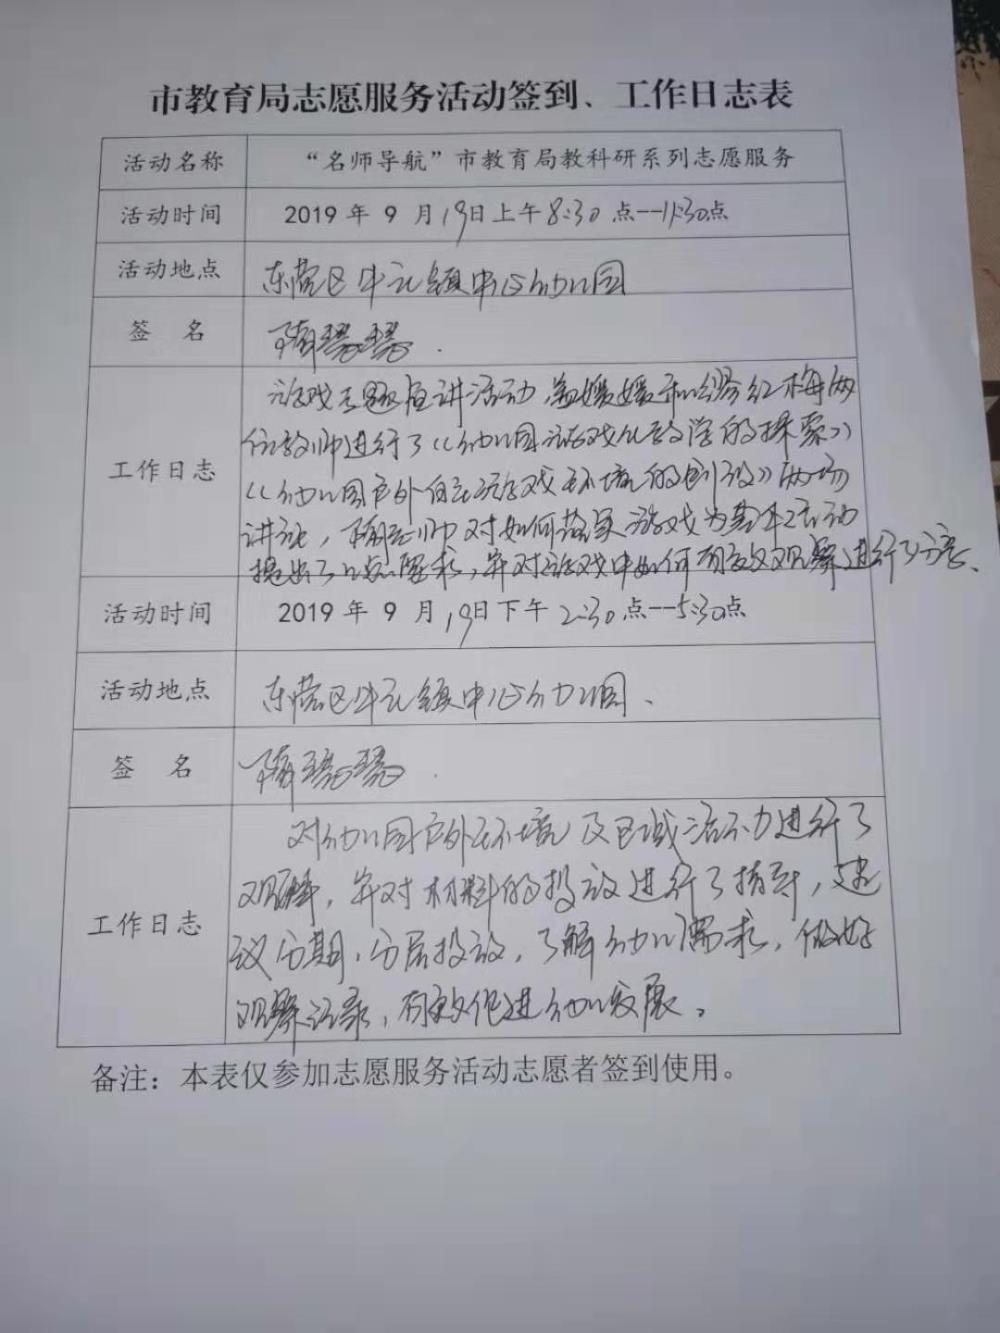 市教育局志愿服务活动签到、工作日志表
活动名称 “名师导航”市教育局教科研系列志愿服务
活动时间 2019 年 9 月 19日上午 8:30 点---11:30点
活动地点 东营区牛庄镇中心幼儿园
签 名
工作日志 游戏专题宣讲活动,媛媛和红梅两
位教师进行了《幼儿园游戏化教学的探索》
《幼儿园户外自主游戏环境的创设》两场
讲座,老师对如何落实游戏为基本活动
提出了几点要求,并对游戏中如何有效观察进行了
活动时间 2019 年 9 月 19日下午 2:30 点---5:30点
活动地点 东营区牛庄镇中心幼儿园、
签 名
工作日志 对幼儿园户外环境及区域活动进行了
观摩,并对材料的投放进行了指导,建
议分期、分层投放,了解幼儿需求,做好
观察记录,有效促进幼儿发展。
备注：本表仅参加志愿服务活动志愿者签到使用。